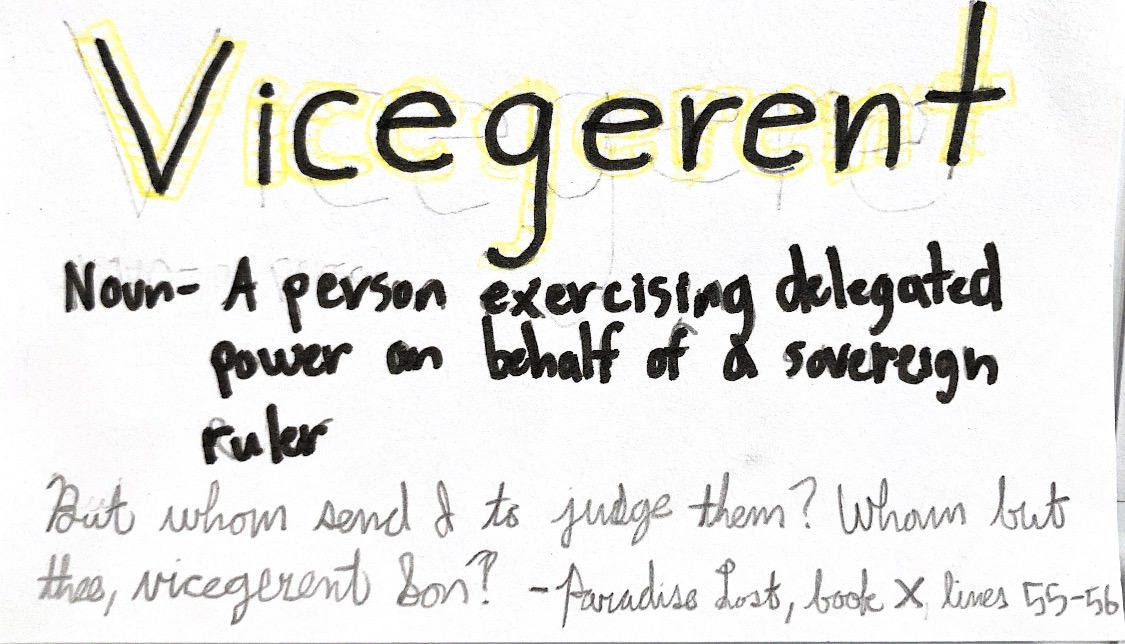 Vicegerent
Noun- A person exercising delegated
power on behalf of a sovereign
ruler
But whom send I to judge them? Whom but
thee, vicegerent Son? - Paradise Lost, book X, lines 55-56